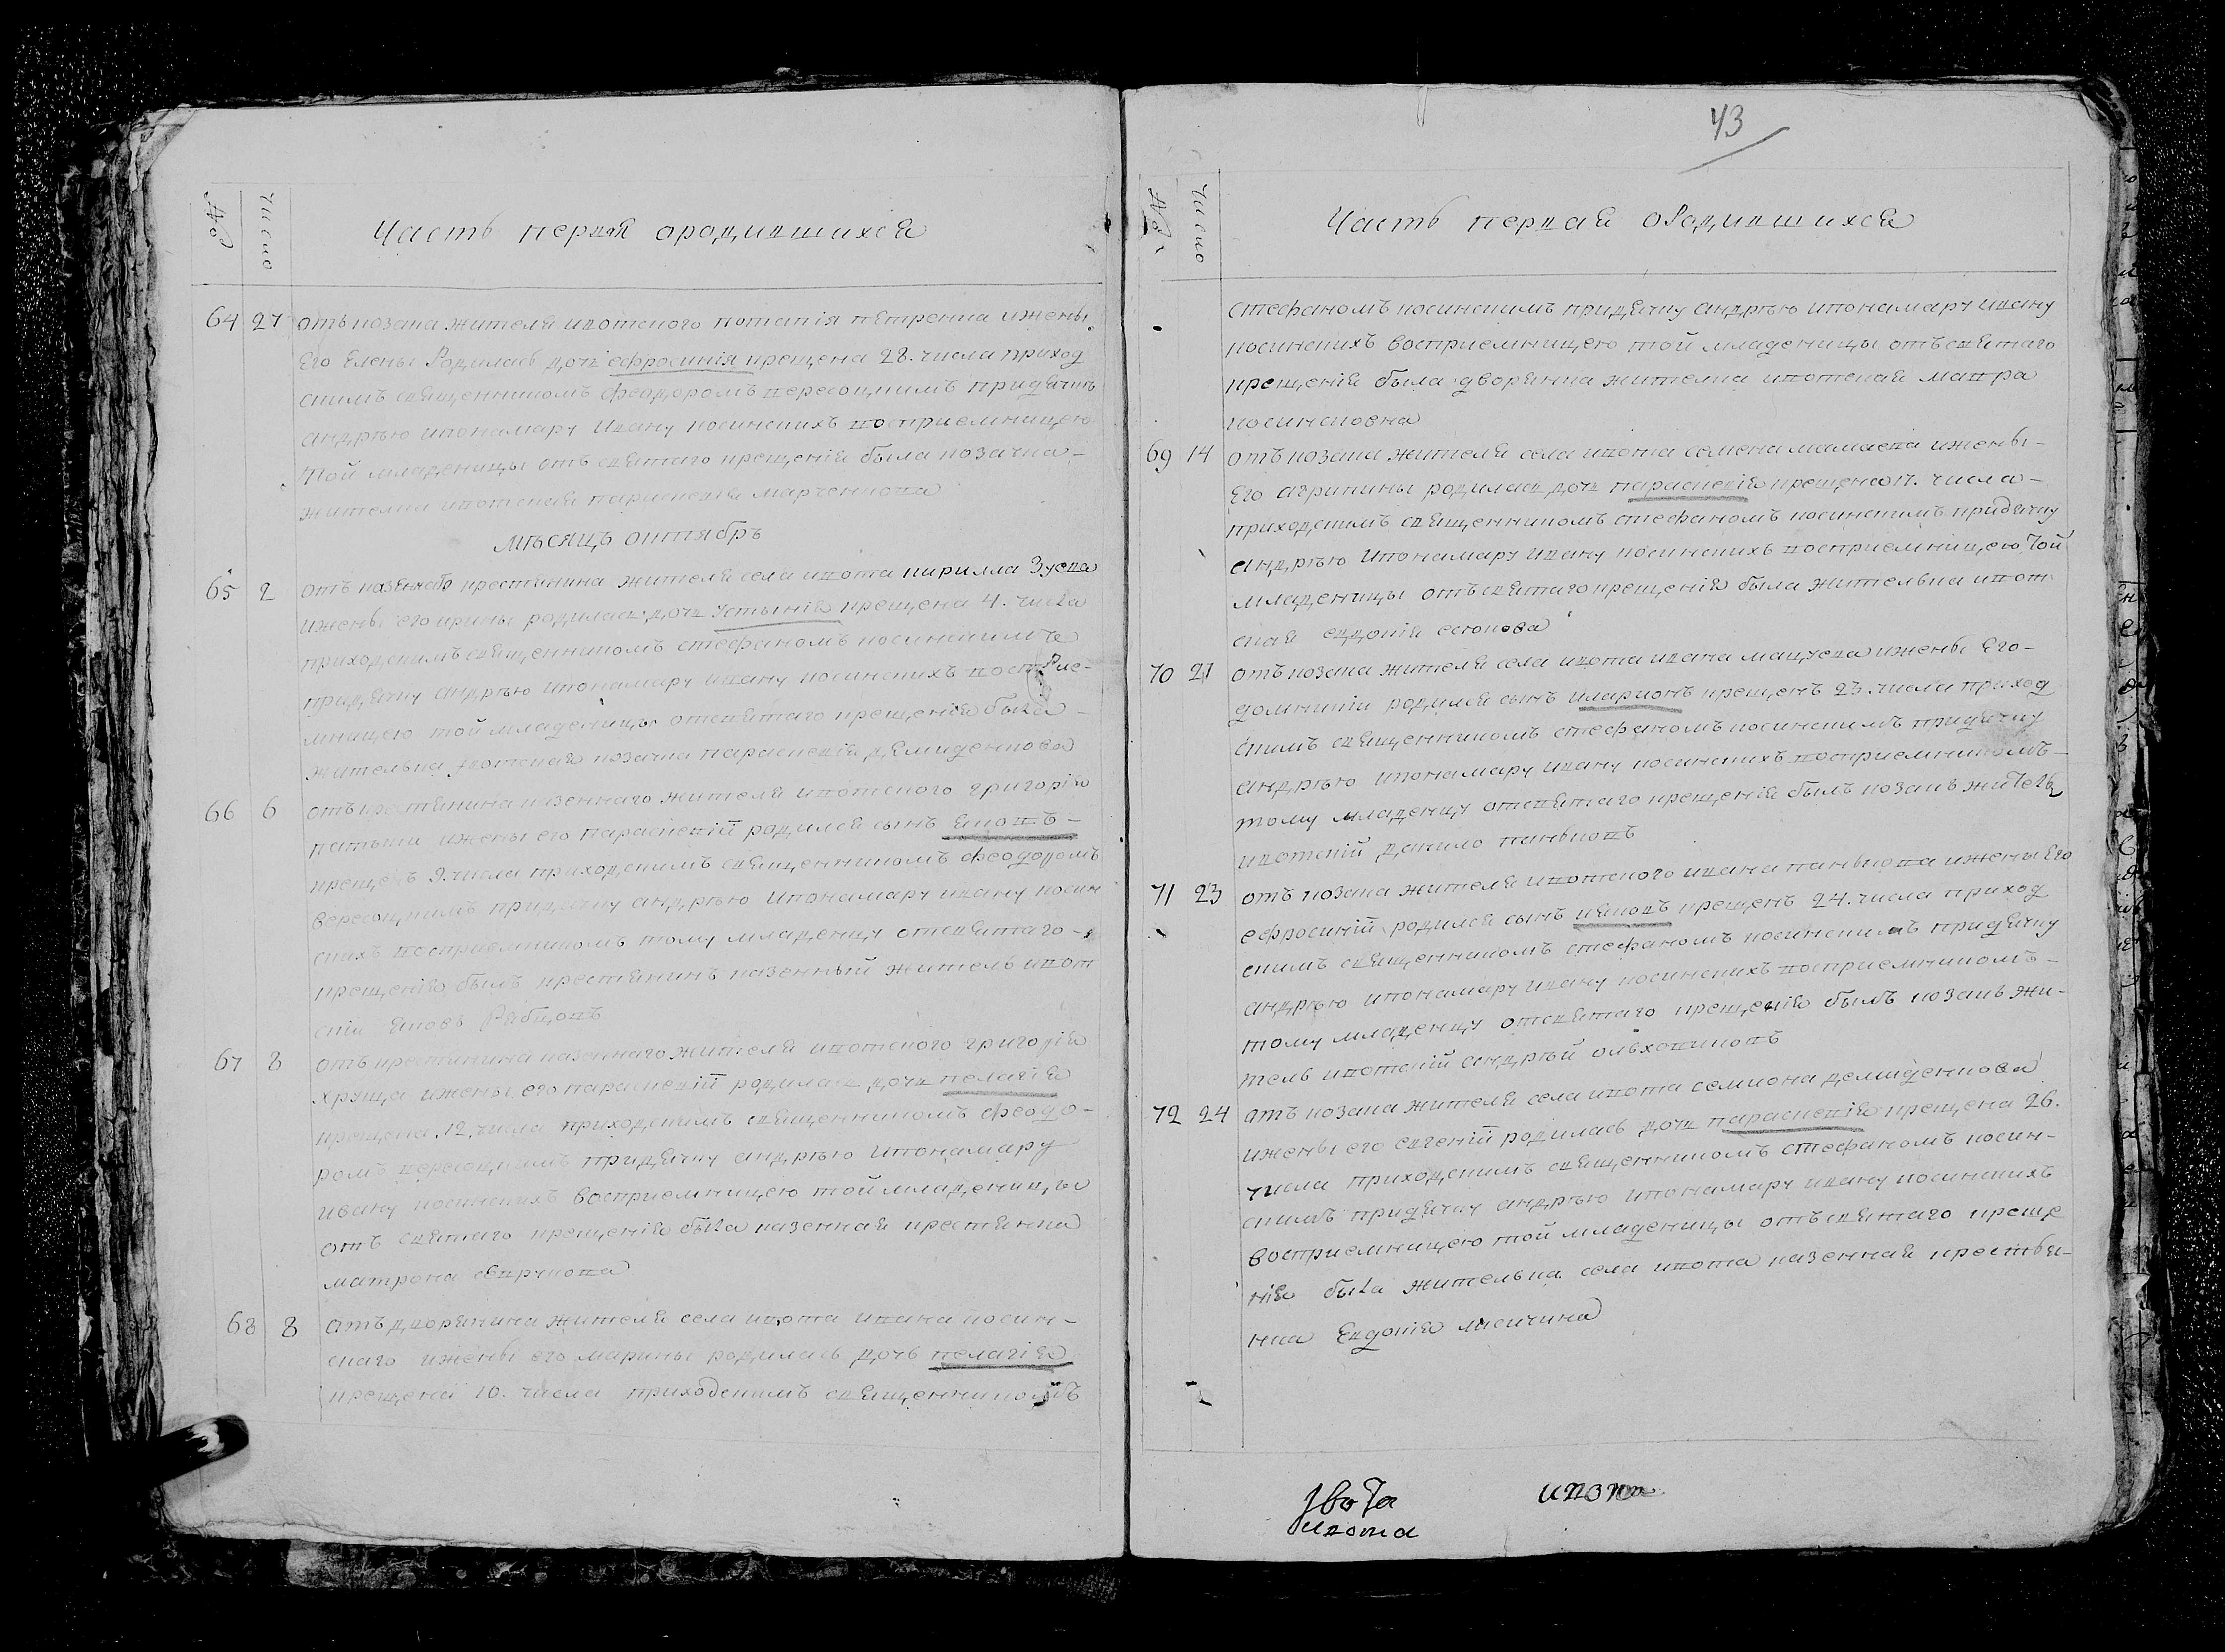 №
Число
Часть первая ородившихся
64 27 отъ козака жителя ивотского потапія петренка ижены
Его Елены Родилась дочь ефросинія крещена 28. числа приход
скимъ священникомъ феодоромъ вересоцкимъ придячку
андрѣю ипонамару Ивану косинскихъ восприемницею
Той младеницы отъ святаго крещенія была козачка
жителка ивотская параскевія марченкова
мѣсяцъ октябрь
65 2 отъ казеннаго крестянина жителя села ивота кирилла Зуева
ижены его ирины родилась дочь устынія крещена 4. числа
приходскимъ священникомъ стефаномъ косинскимъ
придячку андрѣю ипонамару ивану косинскихъ воспРие-
мницею той младеницы отсвятаго крещенія была
жителька ивотская козачка параскевія демиденкова
66 6 отъ крестянина казеннаго жителя ивотского григорія
ижены его параскевій родился сынъ яковъ
крещенъ 9. числа приходскимъ священникомъ феодоромъ
вересоцкимъ придячку андрѣю ипонамару ивану косин
скихъ восприемникомъ тому младенцу отсвятаго
крещенія былъ крестянинъ казенный житель ивот
скій яковъ Рябцовъ
67 8 отъ крестянина казеннаго жителя ивотского григорія
хруща ижены его параскевій родилась дочь пелагія
крещена. 12. числа приходскимъ священникомъ феодо-
ромъ вересоцкимъ придячку андрѣю ипонамару
ивану косинскихъ восприемницею той младеницы
отъ святаго крещенія была казенная крестянка
матрона
68 8 отъ дворянина жителя села ивота ивана косин-
скаго ижены его марины родилась дочь пелагія
крещена 10. числа приходскимъ священникомъ
43
№
Число
Часть первая оРодившихся
стефаномъ косинскимъ придячку андрѣю ипонамару ивану
косинскихъ восприемницею той младеницы отъ святаго
крещенія была дворянка жителка ивотская мавра
косинсковна
69 14 отъ козака жителя села ивота семена мамаева ижены
Его агрипины родилась дочь параскевія крещена 17. числа
приходскимъ священникомъ стефаномъ косинскимъ придячку
андрѣю Ипонамару ивану косинскихъ восприемницею Той
младеницы отъ святаго крещенія была жителька ивот
ская евдокія есюкова
70 21 отъ козака жителя села ивота ивана мацуева ижены Его
домникіи родился сынъ иларионъ крещенъ 23. числа приход
скимъ священникомъ стефаномъ косинскимъ придячку
андрѣю ипонамару ивану косинскихъ восприемникомъ
тому младенцу отсвятаго крещенія былъ козакъ житель
ивотскій данило панковъ
71 23 отъ козака жителя ивотского ивана панькова ижены Его
ефросиній родился сынъ ияковъ крещенъ 24. числа приход
скимъ священникомъ стефаномъ косинскимъ придячку
андрѣю ипонамару ивану косинскихъ восприемникомъ
тому младенцу отсвятаго крещенія былъ козакъ жи-
тель ивотскій андрѣй ольховиковъ
72 24 отъ козака жителя села ивота семиона демиденкова
ижены его евгеній родилась дочь параскевія крещена 26.
числа приходскимъ священникомъ стефаномъ косин-
скимъ придячку андрѣю ипонамару ивану косинскихъ
восприемницею той младеницы отъ святаго креще
нія была жителька села ивота казенная крестья-
нка Евдокія лисичкина
Ивота
Ивота
ивота